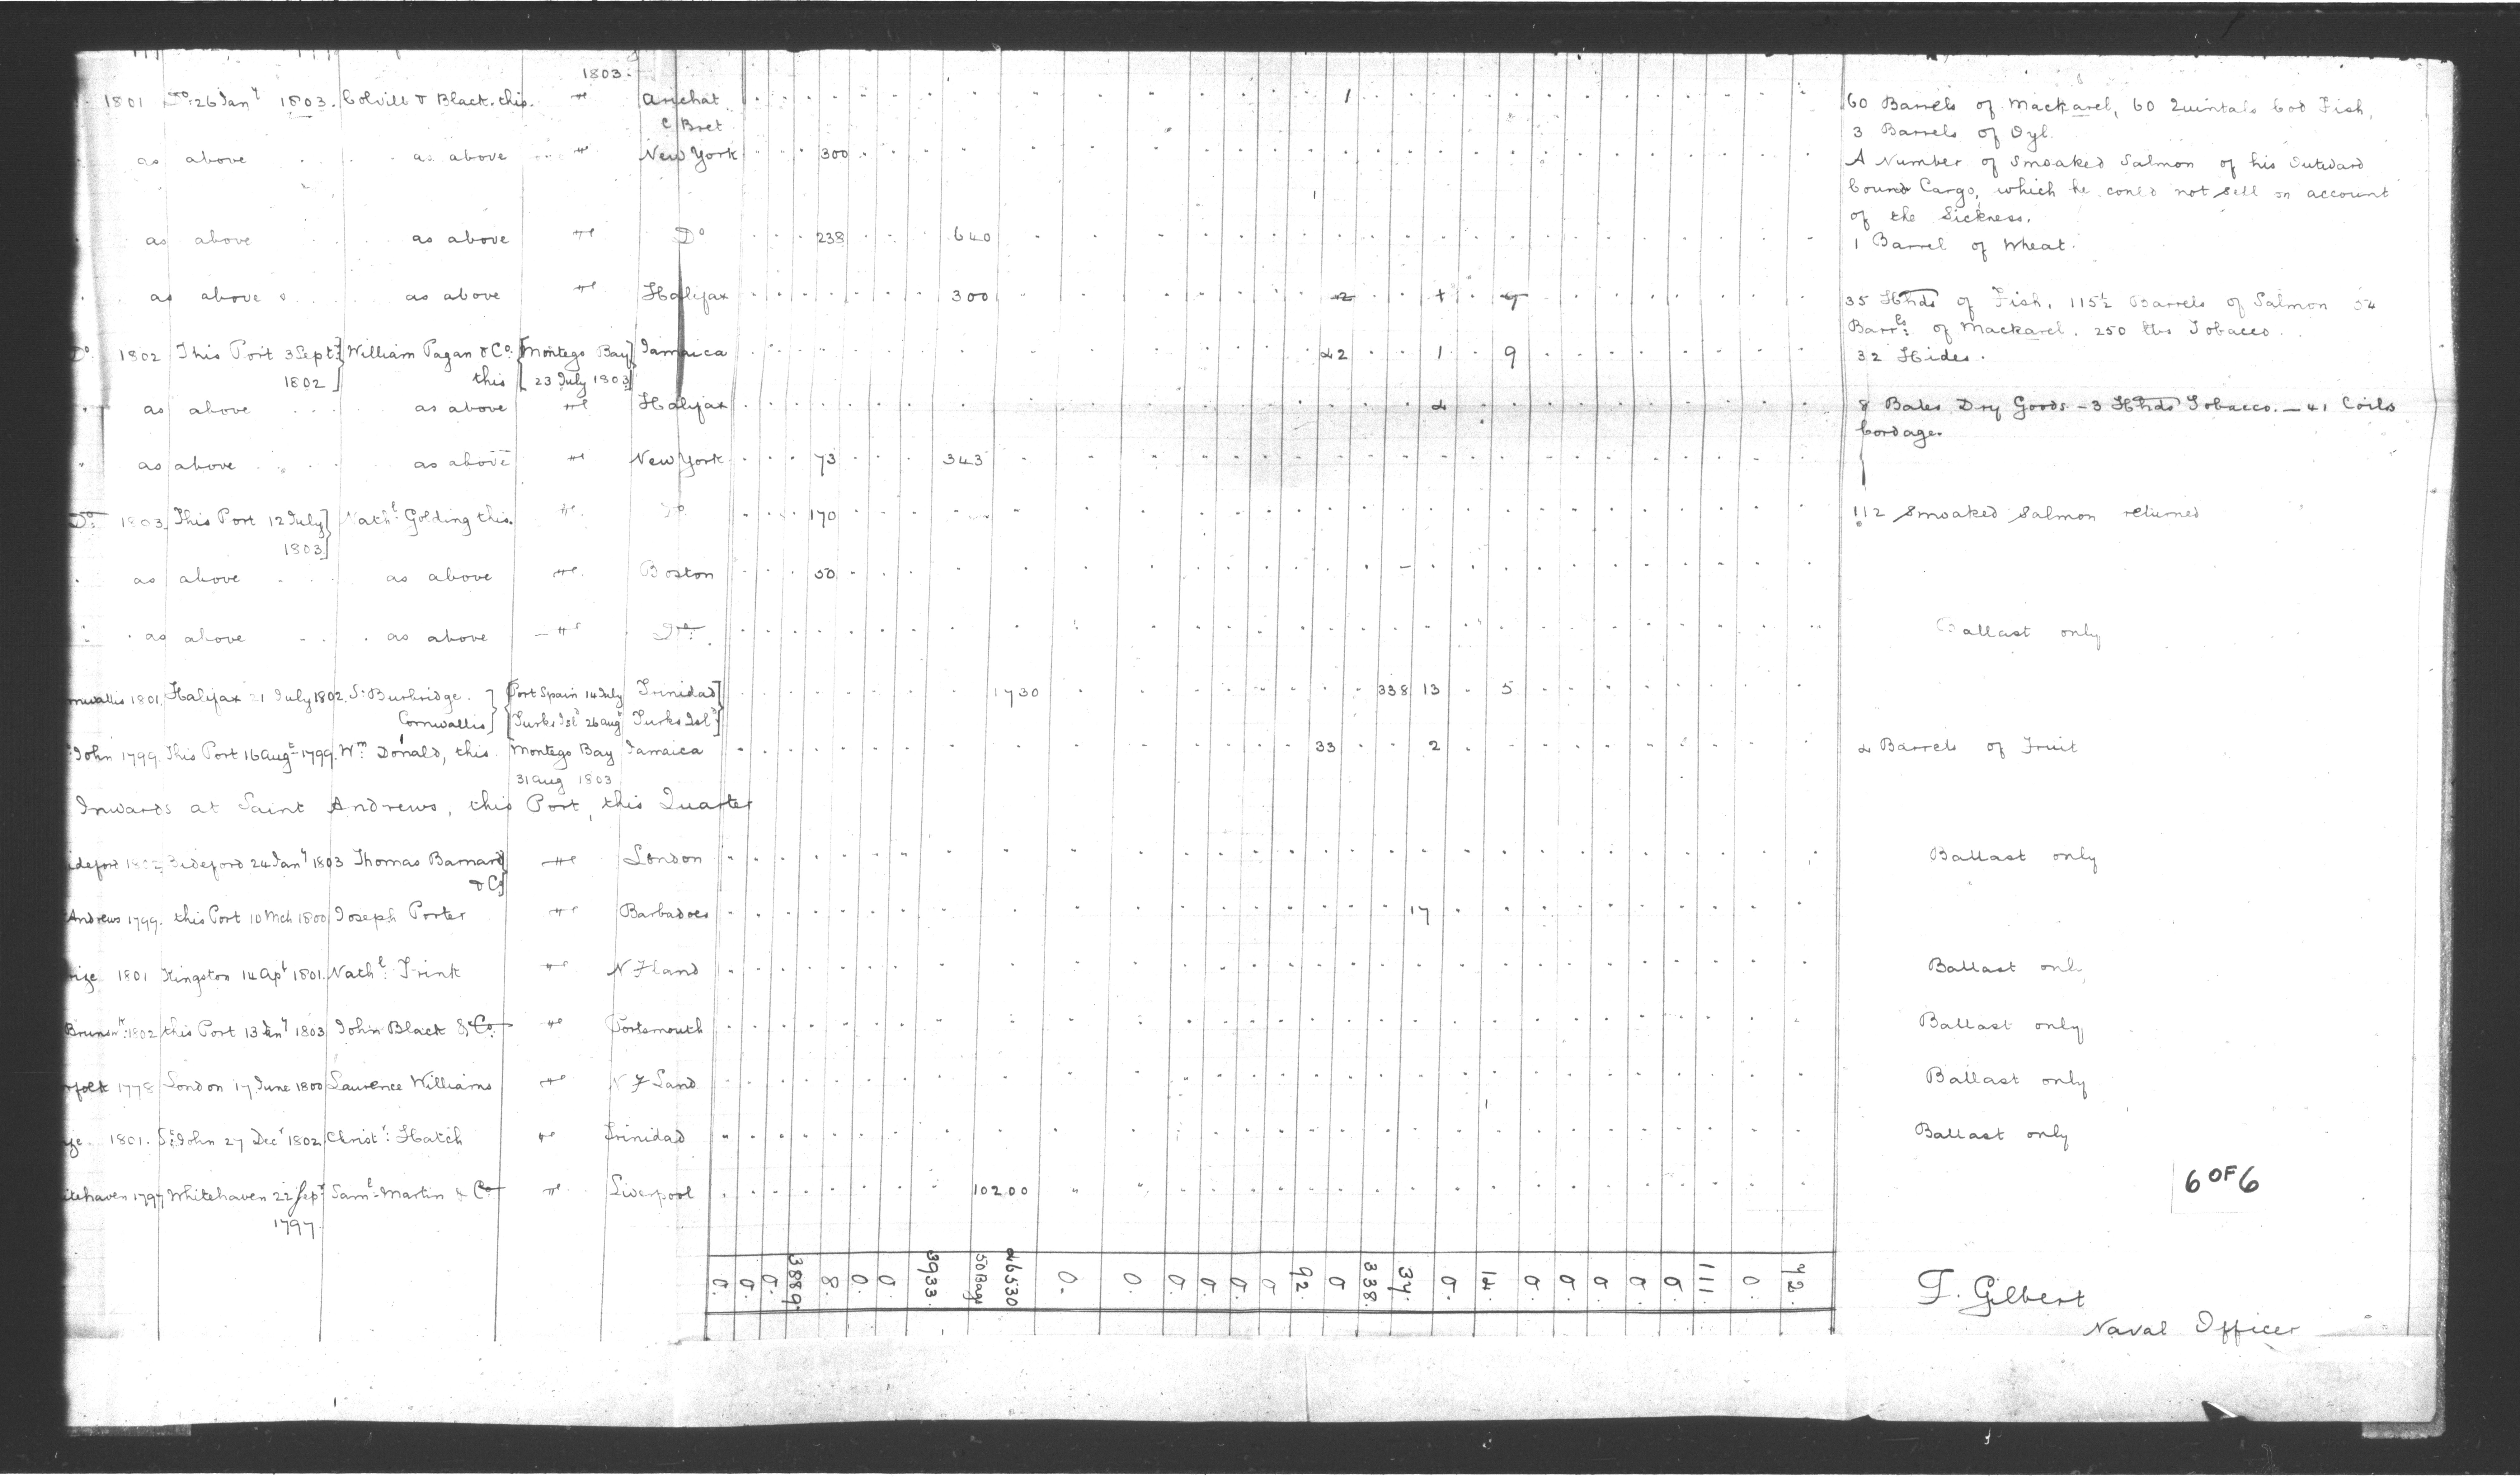 1803.
1801 Do. 26 Jany 1803. Colvill & Black. this. Arichat 1 60 Barrels of Mackarel, 60 Quintals Cod Fish,
C Bret 3 Barrels of Oyl.
as above as above New York 300 A Number of Smoaked Salmon of his Outward
bound Cargo, which he could not sell on account
of the Sickness.
as above as above Do 238 640 1 Barrel of Wheat.
as above as above Halifax 300 35 Hhds of Fish, 115½ Barrels of Salmon 54
Barrls: of Mackarel. 250 lbs Tobacco.
Do. 1802 This Port 3 Sept. William Pagan & Co. Montego Bay Jamaica 42 1 9 32 Hides.
1802 this 23 July 1803
as above as above Halifax 8 Bales Dry Goods - 3 Hhds Tobacco. — 41 Coils
Cordage.
as above as above New York 73 343
Do. 1803 This Port 12 July Nathl. Golding this. Do 170 112 Smoaked Salmon returned
1803
as above as above Boston 50
as above as above Do. Ballast only
rnwallis 1801. Halifax 21 July 1802. S. Burbridge. Port Spain 14 July Trinidad 1730 338 13 5
Cornwallis Turks Isld 26 Augt Turks Isld
John 1799. This Port 16 Augt 1799. Wm Donald, this. Montego Bay Jamaica 33 2 2 Barrels of Fruit
31 Aug 1803
Inwards at Saint Andrews, this Port, this Quarter
ideford 1802 Bideford 24 Jany 1803 Thomas Barnard London Ballast only
& Co
Andrews 1799. this Port 10 Mch 1800 Joseph Porter Barbadoes 17
rize 1801 Kingston 14 Apl 1801. Nathl. Frink N Fland Ballast onl
Brunswk: 1802 this Port 13 Jany 1803 John Black & Co. Portsmouth Ballast only
rfolk 1778 London 17 June 1800 Laurence Williams N F Land Ballast only
ze. 1801. St. John 27 Decr 1802. Christr: Hatch Trinidad Ballast only
itehaven 1797 Whitehaven 22 Sept Saml. Martin & Co Liverpool 10200
1797.
6 OF 6
0. 0. 0. 3889. 8. 0. 0. 3933. 50 Bags 26530 0. 0. 0. 0. 0. 0 92. 0 338. 34. 0. 14. 0 0 0 0. 0. 111. 0. 42.
T. Gilbert
Naval Officer